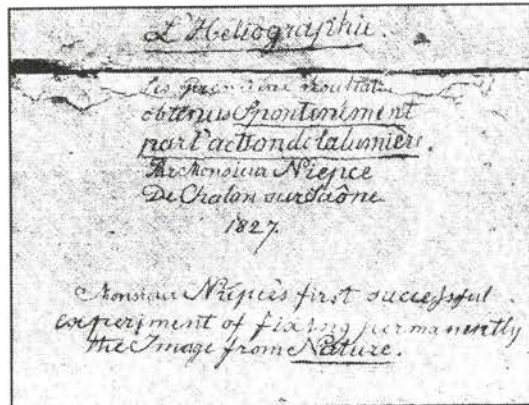 L'Heliographie.
Les premiers résultats
obtenus Spontanément
par l'action de la lumière.
Par Monsieur Niepce
De Chalon sur Saône
1827.
Monsieur Niepce's first successful
experiment of fixing permanently
the Image from Nature.